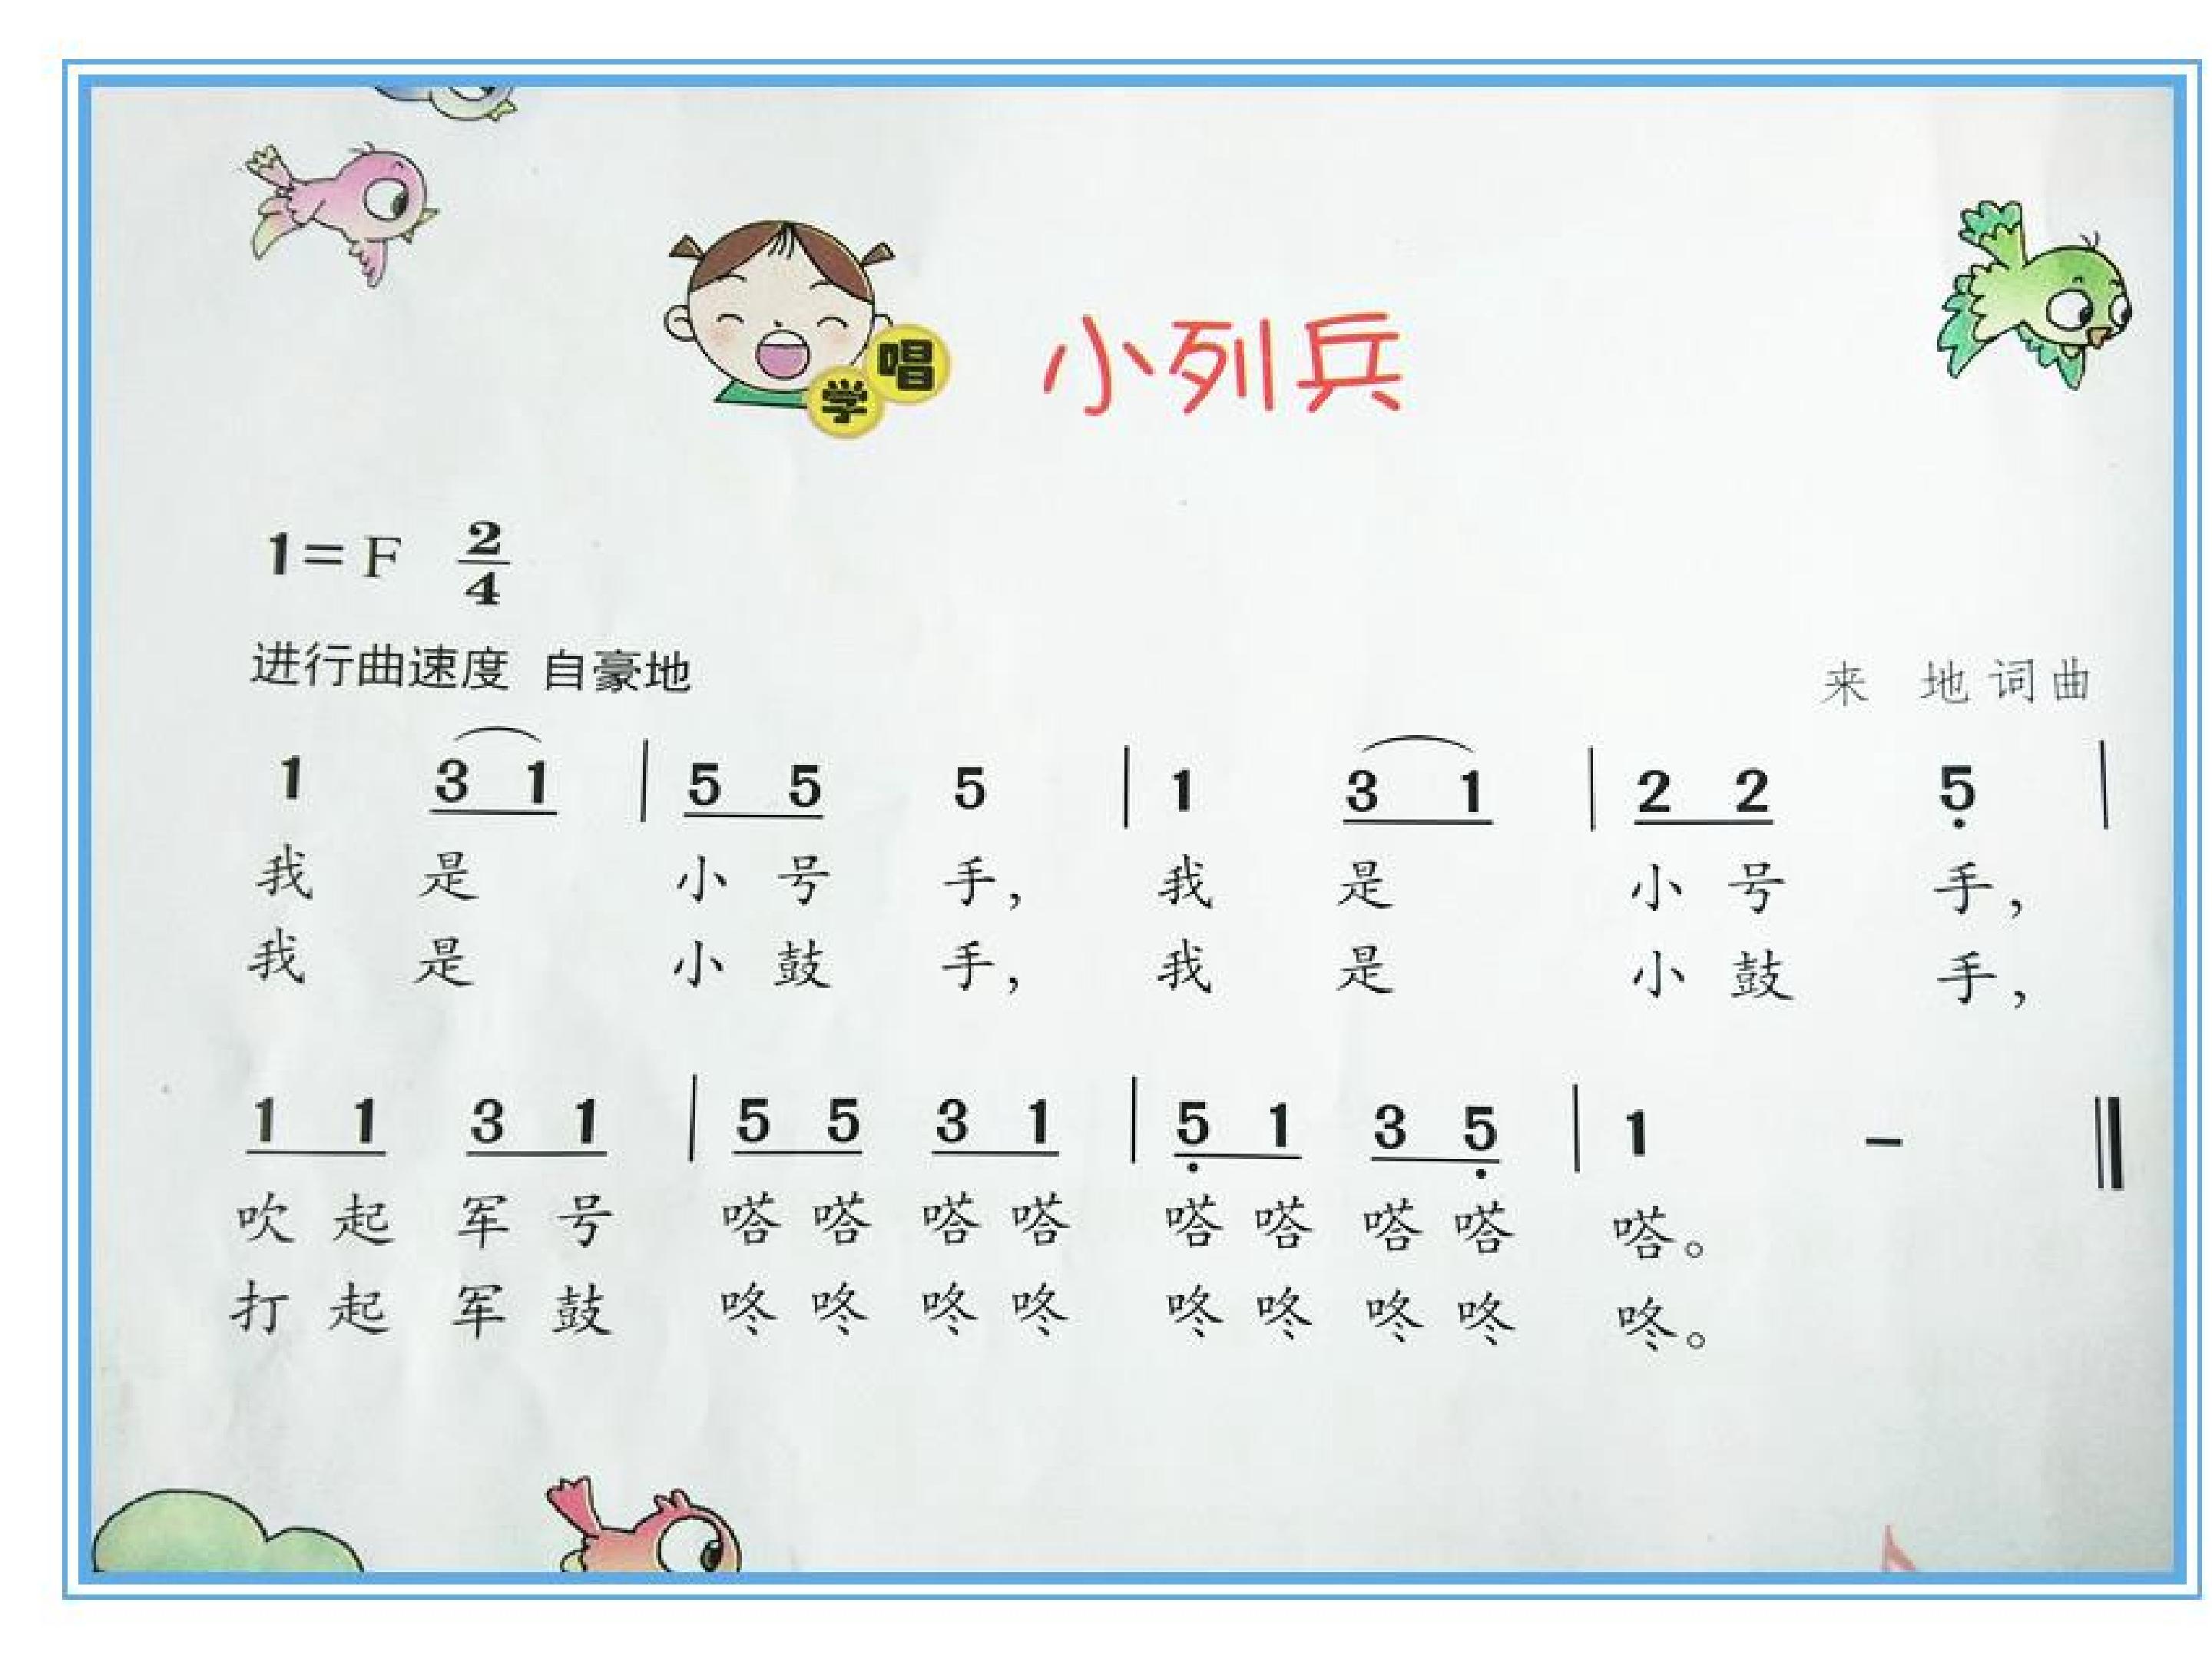 学唱 小列兵
1=F 2/4
进行曲速度 自豪地
来 地词曲
1 3 1 | 5 5 5 | 1 3 1 | 2 2 5̣ |
我 是 小 号 手， 我 是 小 号 手，
我 是 小 鼓 手， 我 是 小 鼓 手，
1 1 3 1 | 5 5 3 1 | 5̣ 1 3 5̣ | 1 – ‖
吹 起 军 号 嗒 嗒 嗒 嗒 嗒 嗒 嗒 嗒 嗒。
打 起 军 鼓 咚 咚 咚 咚 咚 咚 咚 咚 咚。